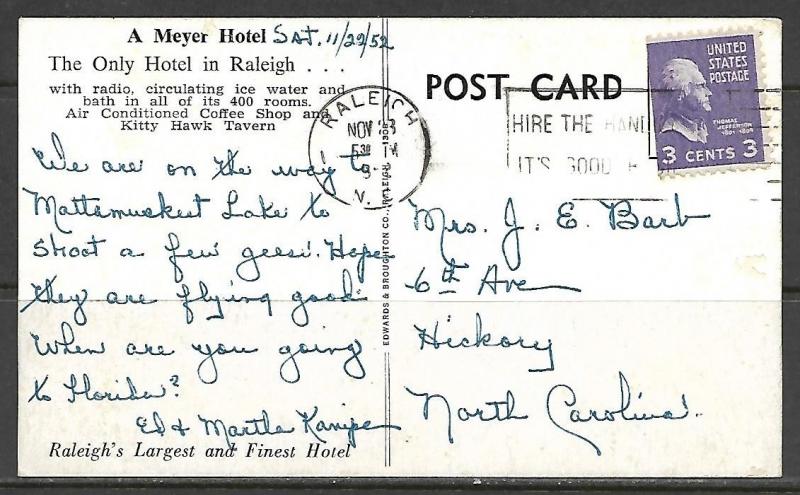 A Meyer Hotel Sat. 11/22/52
The Only Hotel in Raleigh . . .
with radio, circulating ice water and
bath in all of its 400 rooms.
Air Conditioned Coffee Shop and
Kitty Hawk Tavern
We are on the way to
Mattamuskeet Lake to
shoot a few geese. Hope
they are flying good.
When are you going
to Florida?
Ed & Martha Kanipe
Raleigh's Largest and Finest Hotel
EDWARDS & BROUGHTON CO., RALEIGH
POST CARD
RALEIGH
NOV 23
530 PM
HIRE THE HANDI
IT'S GOOD
UNITED
STATES
POSTAGE
THOMAS
JEFFERSON
1801-1809
3 CENTS 3
Mrs. J. E. Barb
6th Ave
Hickory
North Carolina.